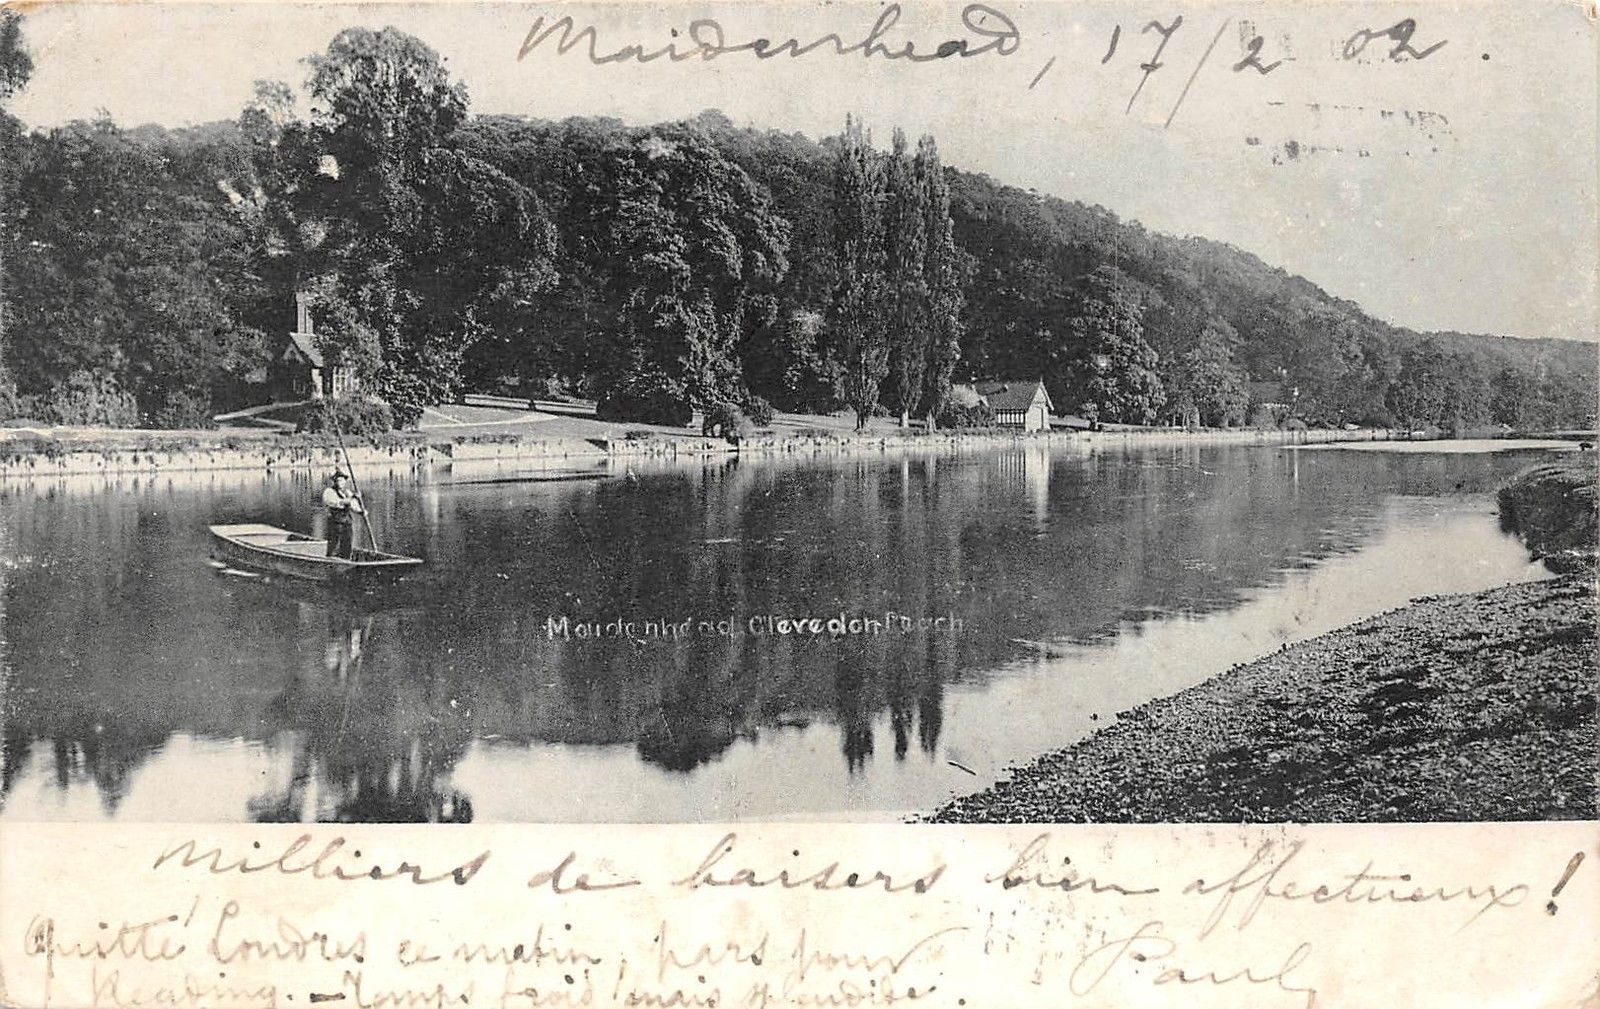 Maidenhead, 17/2 02.
Maidenhead Clevedon Reach
Milliers de baisers bien affectueux!
Quitté Londres ce matin, pars pour
Reading. - Temps froid mais splendide.
Paul